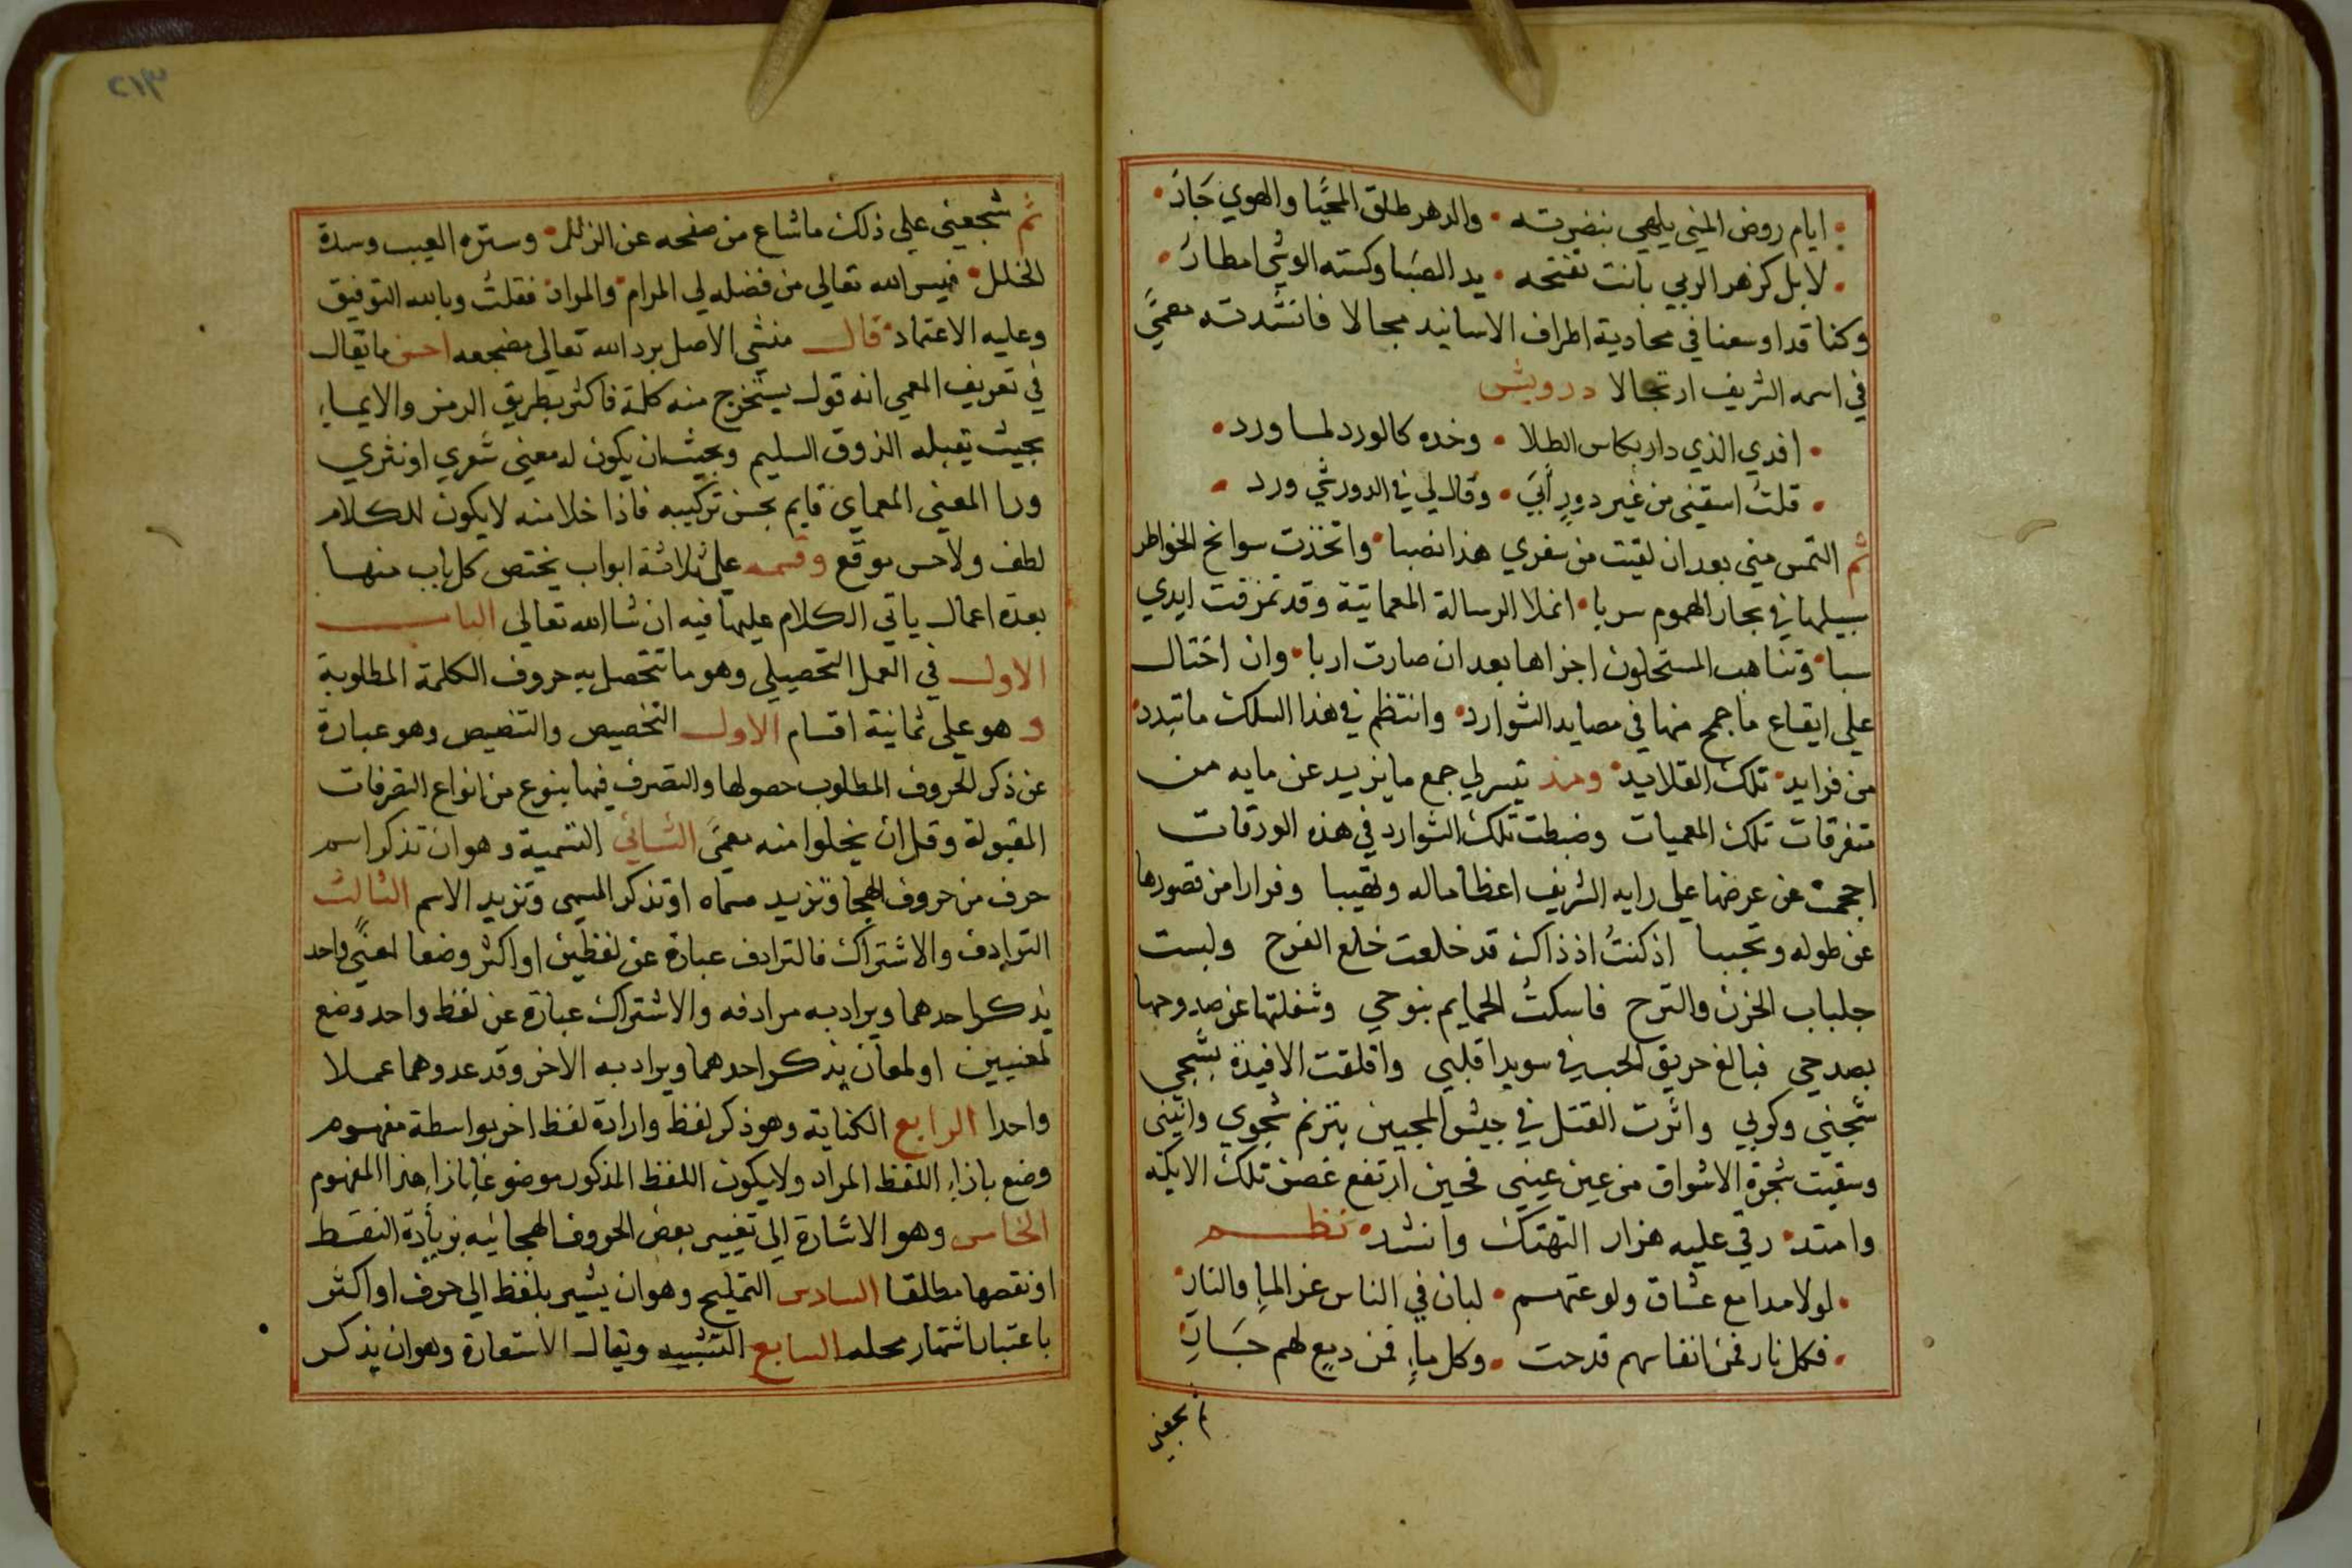 ايام روض المني يلهي بنضرته • والدهر طلق المحَيَّا والهوي جَارُ •
• لا بل كزهر الربي بانت تفتحه • يد الصَبا وكسته الوشَي امطارُ •
وكنا قد اوسعنا في محادية اطراف الاسانيد مجالا فانشدته معميً
في اسمه الشريف ارتجالا درويش
• افدي الذي دار بكاس الطلا • وخده كالورد لما ورد •
• قلتُ اسقيني من غير دورٍ أبَي • وقال لي في الدور شي ورد •
ثم التمس مني بعد ان لقيت من سفري هذا نصبا • واتخذت سوانح الخواطر
سبيلها في بحار الهموم سربا • انملا الرسالة المعماتية وقد تمزقت ايدي
سبا • وتناهب المستحلون اجزاها بعد ان صارت اربا • وان اختال
علي ايقاع ما جمح منها في مصايد الشوارد • وانتظم في هذا السلك ما تبدد •
من فرايد • تلك القلايد • ومنذ تيسر لي جمع ما يزيد عن مايه من
متفرقات تلك المعميات وضبطت تلك الشوارد في هذه الورقات
اجحمت عن عرضها علي رايه الشريف اعظاما له وتهيبا وفرارا من قصورها
عن طوله وتجببا اذ كنتُ اذ ذاك قد خلعت خلع الفرح ولبست
جلباب الحزن والترح فاسكتُ الحمايم بنوحي وشغلتها عن صدوحها
بصدحي فبالغ حريق الحب في سويدا قلبي واقلقت الافيدة بشجي
شجني وكربي واثرت القتل في جيش المحبين بترنم شجوي وانيني
وسقيت شجرة الاشواق من عين عيني فحين ارتفع غصن تلك الايكه
وامتد • رقي عليه هزار التهتك وانشد • نظم
• لولا مدامع عشاق ولوعتهم • لبان في الناس عز الماءِ والنارِ •
• فكل نار فمن انفاسهم قدحت • وكل ماءٍ فمن دمعٍ لهم جَارِ •
ثم شجعني
٢١٣
ثم شجعني علي ذلك ما شاع من صفحه عن الزلل • وستره العيب وسدة
الخلل • فيسر الله تعالي من فضله لي المرام • والمراد • فقلتُ وبالله التوفيق
وعليه الاعتماد • قال منشي الاصل برد الله تعالي مضجعه احسن ما يقال
في تعريف المعمي انه قول يستخرج منه كلمة فاكثر بطريق الرمز والايماء
بحيث يقبله الذوق السليم وبحيث ان يكون له معني شعري او نثري
ورا المعني المعماي قايم بحسن تركيبه فاذا خلا منه لا يكون للكلام
لطف ولا حسن موقع وقسمه علي ثلاثة ابواب يختص كل باب منها
بعدة اعمال ياتي الكلام عليها فيه ان شا الله تعالي الباب
الاول في العمل التحصيلي وهو ما تتحصل به حروف الكلمة المطلوبة
وهو علي ثمانية اقسام الاول التخصيص والتنصيص وهو عبارة
عن ذكر الحروف المطلوب حصولها والتصرف فيها بنوع من انواع التصرفات
المقبولة وقل ان يخلوا منه معميً الثاني التسمية وهو ان تذكر اسم
حرف من حروف الهجا وتريد مسماه او تذكر المسمي وتريد الاسم الثالث
الترادف والاشتراك فالترادف عبارة عن لفظين او اكثر وضعا لمعنًي واحد
يذكر احدهما ويراد به مرادفه والاشتراك عبارة عن لفظ واحد وضع
لمعنيين او لمعان يذكر احدهما ويراد به الاخر وقد عدوهما عملا
واحدا الرابع الكناية وهو ذكر لفظ وارادة لفظ اخر بواسطة مفهوم
وضع بازاء اللفظ المراد ولا يكون اللفظ المذكور موضوعا بازاء هذا المفهوم
الخامس وهو الاشارة الي تغيير بعض الحروف الهجائيه بزيادة النقط
او نقصها مطلقا السادس التمليح وهو ان يشير بلفظ الي حرف او اكثر
باعتبار اشتهار محله السابع التشبيه ويقال الاستعارة وهو ان يذكر